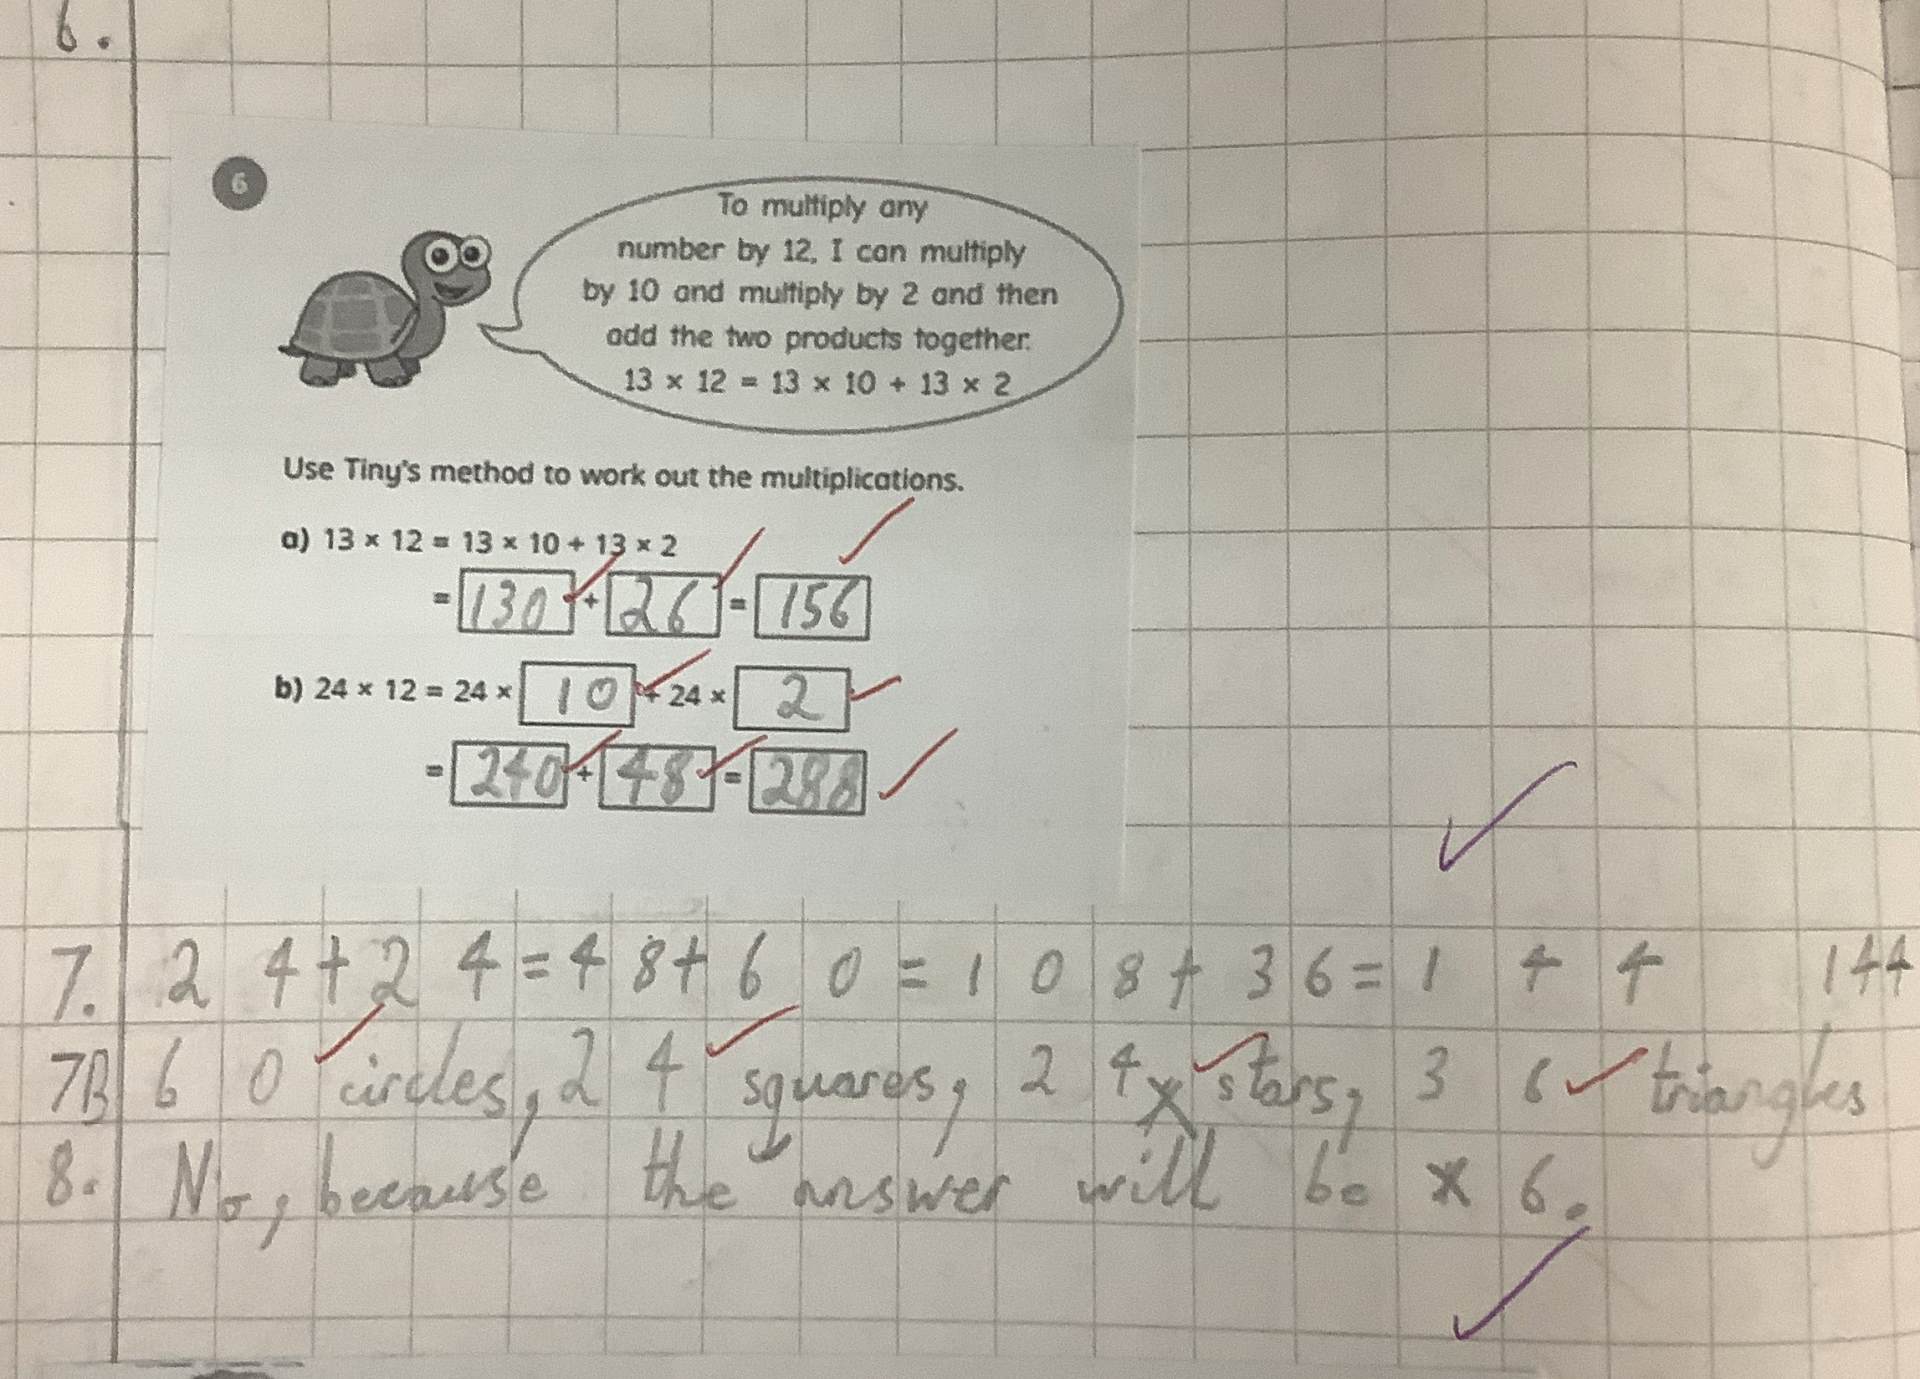 6.
6
To multiply any
number by 12, I can multiply
by 10 and multiply by 2 and then
add the two products together.
13 × 12 = 13 × 10 + 13 × 2
Use Tiny's method to work out the multiplications.
a) 13 × 12 = 13 × 10 + 13 × 2
= 130 + 26 = 156
b) 24 × 12 = 24 × 10 + 24 × 2
= 240 + 48 = 288
7. 24+24=48+60=108+36=144 144
7B 60 circles, 24 squares, 24 stars, 36 triangles
8. No, because the answer will be × 6.